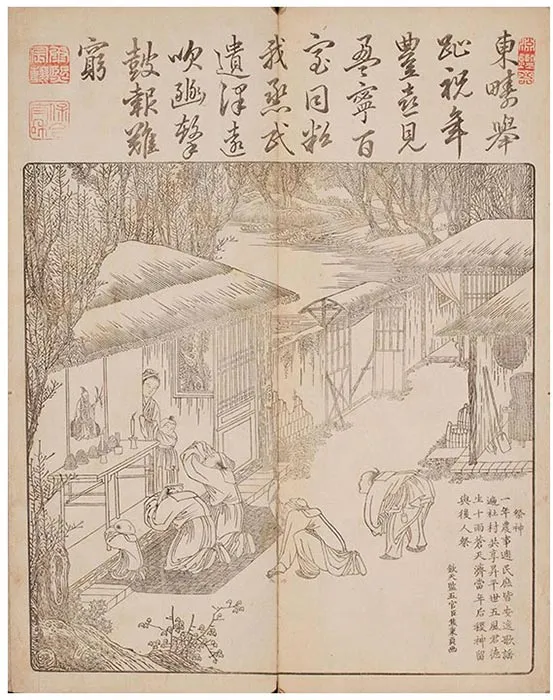 東疇舉
趾祝年
豐喜見
盈寧百
室同粒
我烝民
遺澤遠
吹豳擊
鼓報難
窮
祭神
一年農事週民庶皆安逸歌謠
遍社村共享昇平世五風君德
生十雨蒼天濟當年后稷神留
與後人祭
欽天監五官臣焦秉貞畫